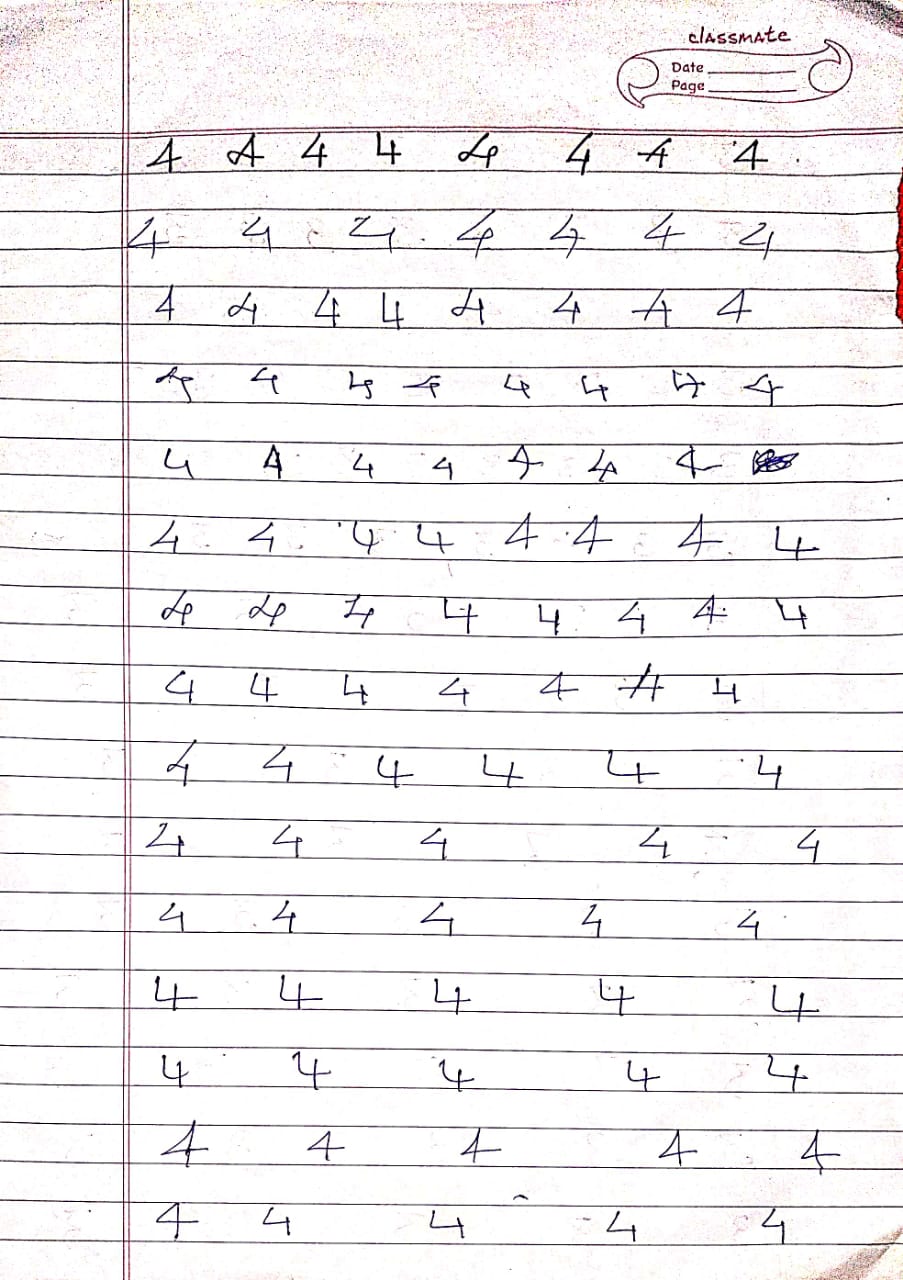 classmate
Date
Page
4 4 4 4 4 4 4 4
4 4 4 4 4 4 4
4 4 4 4 4 4 4 4
4 4 4 4 4 4 4 4
4 4 4 4 4 4 4
4 4 4 4 4 4 4 4
4 4 4 4 4 4 4 4
4 4 4 4 4 4 4
4 4 4 4 4 4
4 4 4 4 4
4 4 4 4 4
4 4 4 4 4
4 4 4 4 4
4 4 4 4 4
4 4 4 4 4